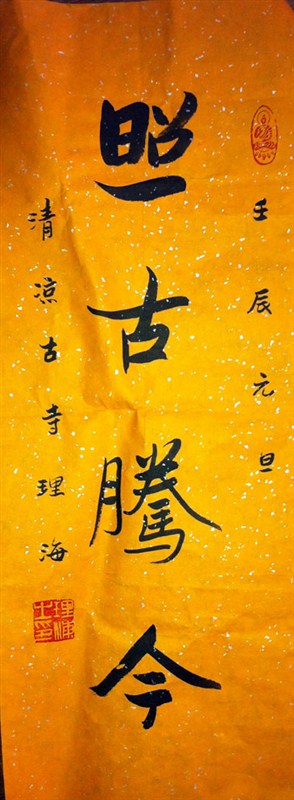 壬辰元旦
照古騰今
清凉古寺理海